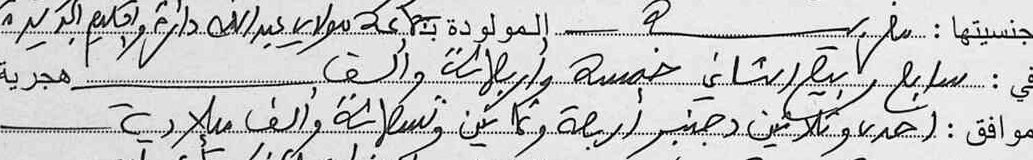 جنسيتها : مغربية المولودة بجماعة مولاي عبد الله دائرة وإقليم الجديدة
في : سابع ربيع الثاني خمسة وأربعمائة وألف هجرية
موافق : احدى وثلاثين دجنبر أربعة وثمانين وتسعمائة وألف ميلادية